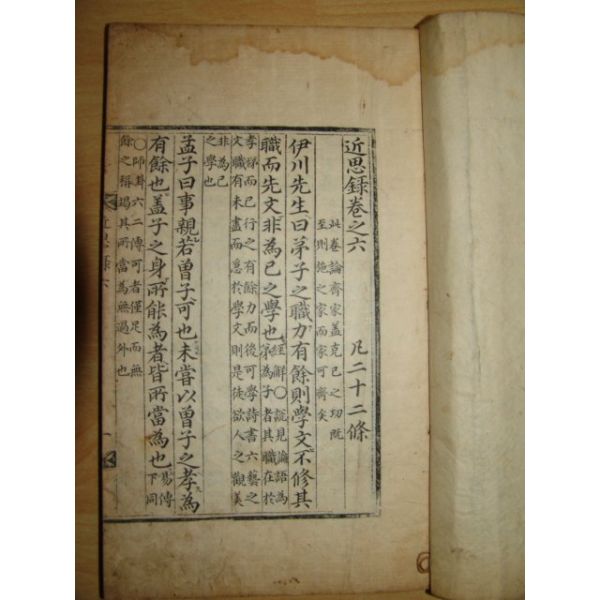 近思錄卷之六
此卷論齊家盖克己之功既
至則施之家而家可齊矣
凡二十二條
伊川先生曰弟子之職力有餘則學文不修其
職而先文非為己之學也
經解○說見論語為
弟為子者其職在於
孝弟而已行之有餘力而後可學詩書六藝之
文職有未盡而急於學文則是徒欲人之觀美
非為己
之學也
孟子曰事親若曾子可也未嘗以曾子之孝為
有餘也盖子之身所能為者皆所當為也
易傳
下同
○師卦六二傳可者僅足而無
餘之稱竭其所當為無過外也
近思錄六